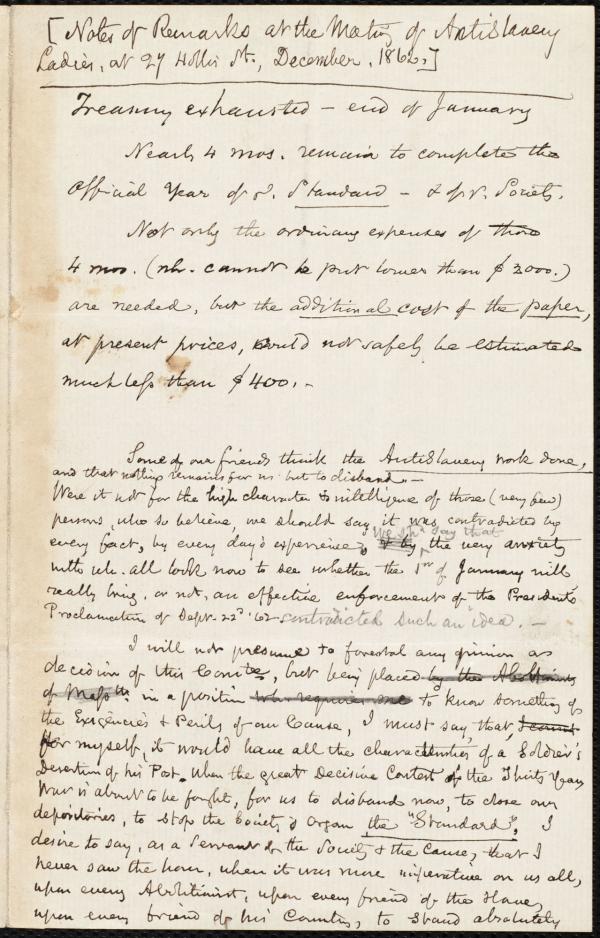 [Notes of Remarks at the Meeting of AntiSlavery
Ladies, at 27 Hollis St., December, 1862.]
Treasury exhausted – end of January
Nearly 4 mos. remain to complete the
Official Year of Standard – Society.
Not only the ordinary expenses of those
4 mos. (wh. cannot be put lower than $2000.)
are needed, but the additional cost of the paper,
at present prices, could not safely be estimated
much less than $400. –
Some of our friends think the AntiSlavery work done,
and that nothing remains for us but to disband. –
Were it not for the high character & intelligence of those (very few)
persons, who so believe, we should say, it was contradicted by
We shd. say that
every fact, by every day's experience, & by the very anxiety
with wh. all look now to see whether the 1st of January will
really bring, or not, an effective enforcement of the President's
Proclamation of Sept. 22d '62 contradicted such an idea. –
I will not presume to forestal any opinion or
decision of this Comtee, but being placed by the Abolitionists
of Massts. in a position wh. requires me to know something of
the Exigencies & Perils of our Cause, I must say, that, I cannot
for myself, it would have all the characteristics of a Soldier's
Desertion of his Post. When the great Decisive Contest of the Thirty Years
War is about to be fought, for us to disband now, to close our
depositories, to stop the Society's Organ the "Standard", I
desire to say, as a Servant of the Society & the Cause, that I
never saw the hour, when it was more imperative on us all,
upon every Abolitionist, upon every friend of the Slave,
upon every friend of his Country, to stand absolutely